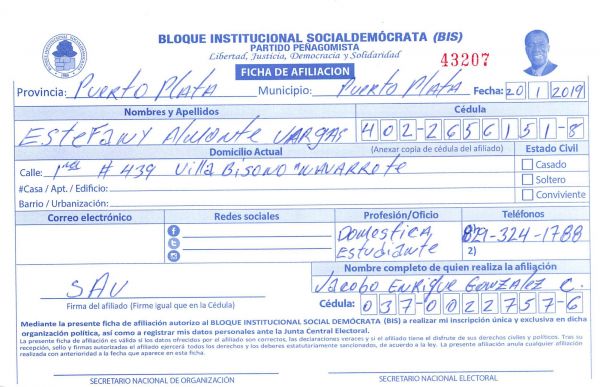 BLOQUE INSTITUCIONAL SOCIALDEMÓCRATA (BIS)
PARTIDO PEÑAGOMISTA
Libertad, Justicia, Democracia y Solidaridad
43207
FICHA DE AFILIACION
Provincia: Puerto Plata Municipio: Puerto Plata Fecha: 20/1/2019
Nombres y Apellidos Cédula
Estefany Almonte Vargas 402-2656151-8
Domicilio Actual (Anexar copia de cédula del afiliado) Estado Civil
Calle: # 439 Villa Bisono Navarrete Casado
#Casa / Apt. / Edificio: Soltero
Barrio / Urbanización: Conviviente
Correo electrónico Redes sociales Profesión/Oficio Teléfonos
Domestica 829-324-1788
Estudiante 2)
Nombre completo de quien realiza la afiliación
SAV Jacobo Enrique Gonzalez C.
Firma del afiliado (Firme igual que en la Cédula) Cédula: 037-0022757-6
Mediante la presente ficha de afiliación autorizo al BLOQUE INSTITUCIONAL SOCIAL DEMÓCRATA (BIS) a realizar mi inscripción única y exclusiva en dicha
organización política, así como a registrar mis datos personales ante la Junta Central Electoral.
La presente ficha de afiliación es válida si los datos ofrecidos por el afiliado son correctos, las declaraciones veraces y si el afiliado tiene el disfrute de sus derechos civiles y políticos. Tras su
recepción, sello y firmas autorizadas el afiliado ejercerá todos los derechos y los deberes estatutariamente sancionados, de acuerdo a la ley. La presente afiliación anula cualquier afiliación
realizada con anterioridad a la fecha que aparece en esta ficha.
SECRETARIO NACIONAL DE ORGANIZACIÓN SECRETARIO NACIONAL ELECTORAL